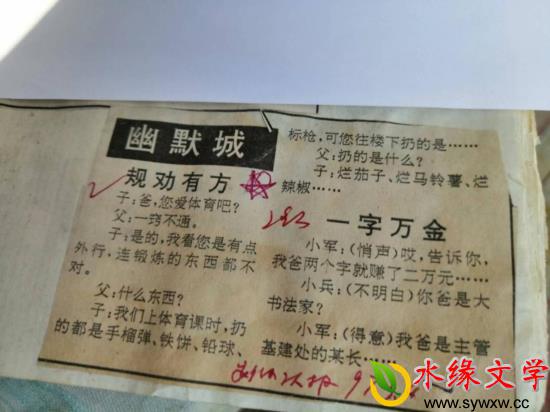 幽默城
规劝有方
子:爸,您爱体育吧?
父:一窍不通。
子:是的,我看您是有点
外行,连锻炼的东西都不
对。
父:什么东西?
子:我们上体育课时,扔
的都是手榴弹、铁饼、铅球、
标枪,可您往楼下扔的是……
父:扔的是什么?
子:烂茄子、烂马铃薯、烂
辣椒……
一字万金
小军:(悄声)哎,告诉你,
我爸两个字就赚了二万元……
小兵:(不明白)你爸是大
书法家?
小军:(得意)我爸是主管
基建处的某长……
水缘文学
www.sywxw.cc